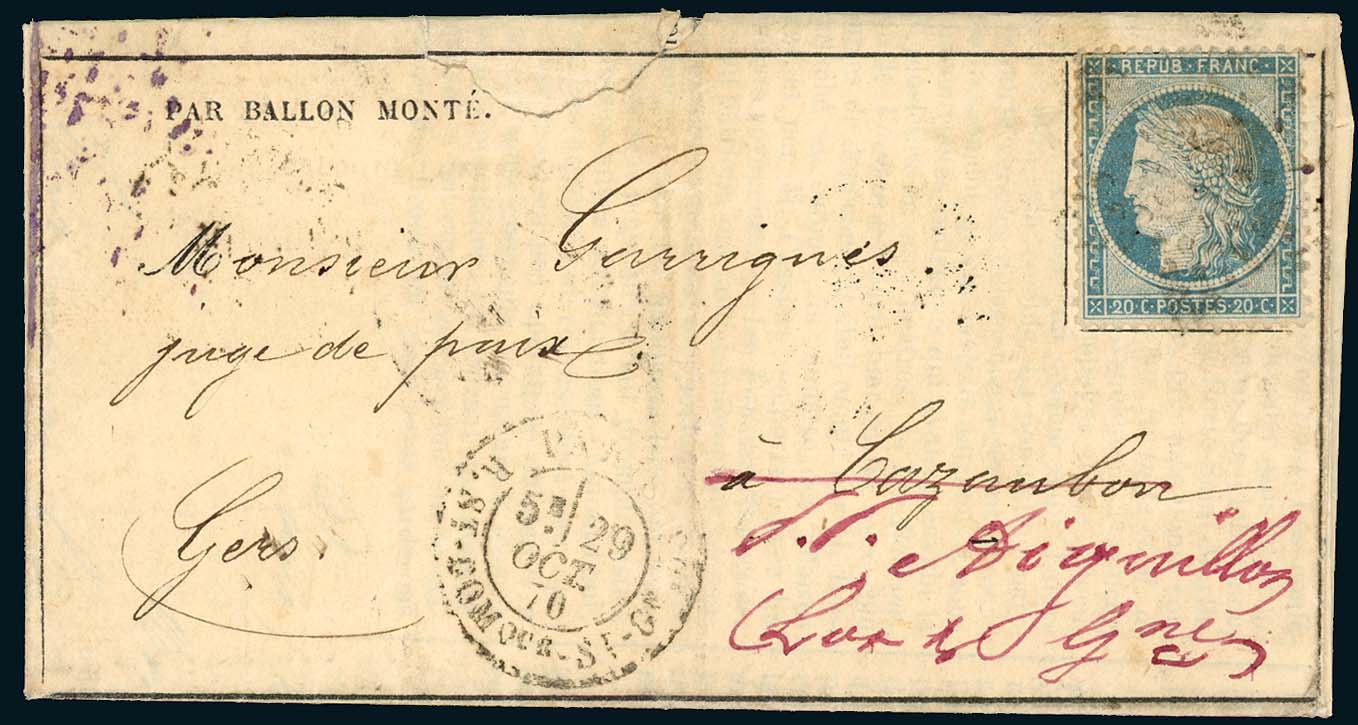 PAR BALLON MONTÉ.
REPUB·FRANC·
20·C·POSTES·20·C·
Monsieur Garrigues.
juge de paix
à Cazaubon
Gers.
PARIS
5E 29
OCT.
70
R. ST-DOMque-St-Gn
Aiguillon
Lot & Gne